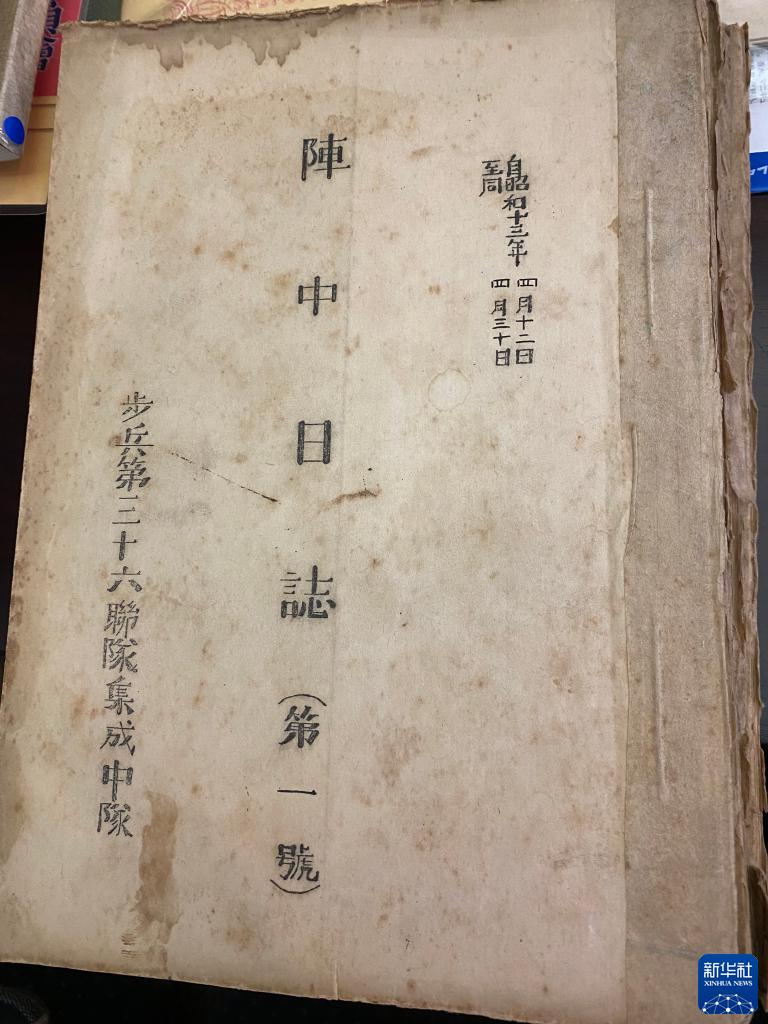 自昭和十三年四月十二日
至同四月三十日
陣中日誌(第一號)
步兵第三十六聯隊集成中隊
新华社
XINHUA NEWS